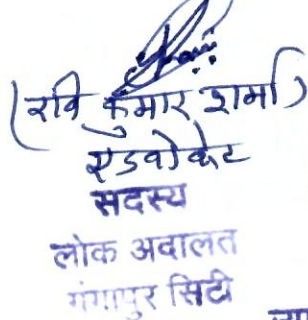 (रवि कुमार शर्मा)
एडवोकेट
सदस्य
लोक अदालत
गंगापुर सिटी